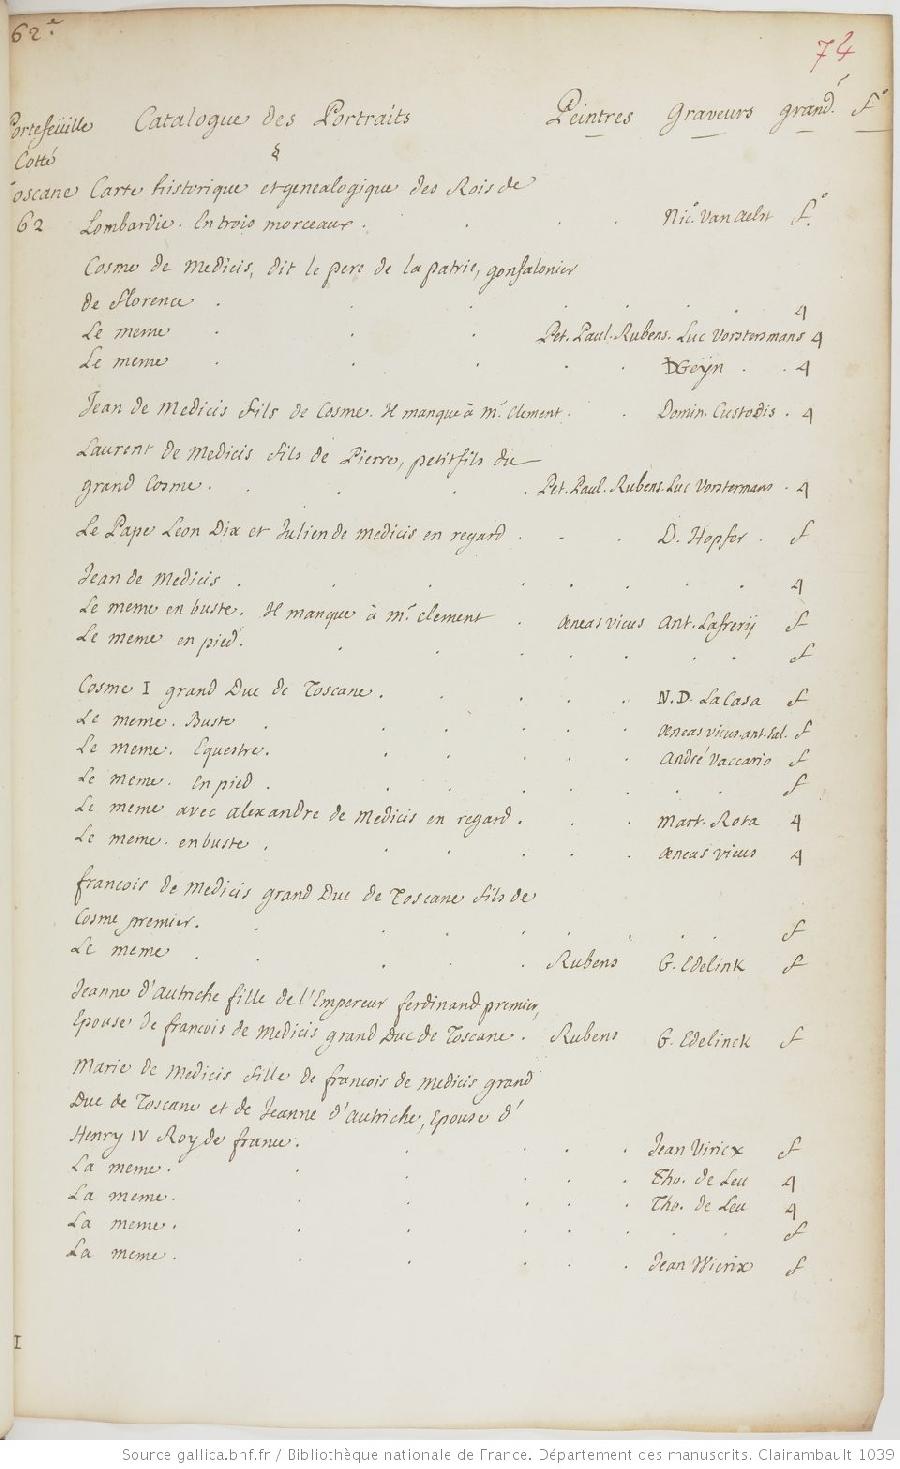 62.e
74
Portefeüille Catalogue des Portraits Peintres Graveurs grand.r f.o
Cotté &
Toscane Carte historique et genealogique des Rois de
62 Lombardie. En trois morceaux . . . . Nic. Van aelst f.o
Cosme de Medicis, dit le pere de la patrie, gonfalonier
de Florence . . . . . . 4
Le meme . . . Pet. Paul. Rubens. Luc Vorstersmans 4
Le meme . . . . . DGeÿn . . 4
Jean de Medicis fils de Cosme. Il manque à Mr. Clement . . Domin. Custodis . 4
Laurent de Medicis fils de Pierre, petit fils du
grand Cosme . . . . . Pet. Paul. Rubens. Luc Vorstermans . 4
Le Pape Leon Dix et Julien de Medicis en regard . . . D. Hopfer . f
Jean de Medicis . . . . . . . . 4
Le meme en buste. Il manque à mr. clement . æneas vicus ant. Lafrerij f
Le meme en pied. . . . . . . f
Cosme I grand Duc de Toscane . . . . . N.D. LaCasa f
Le meme. Buste . . . . . . æneas vicus. ant. Sal. f
Le meme. Equestre. . . . . . André Vaccario f
Le meme. En pied . . . . . . . . f
Le meme avec alexandre de Medicis en regard . . . Mart. Rota 4
Le meme. en buste . . . . . æneas vicus 4
françois de Medicis grand Duc de Toscane fils de
Cosme premier. . . . . . . . f
Le meme . . . . . Rubens G. Edelink f
Jeanne d'Autriche fille de l'Empereur ferdinand premier,
Epouse de françois de Medicis grand Duc de Toscane . Rubens G. Edelinck f
Marie de Medicis fille de françois de medicis grand
Duc de Toscane et de Jeanne d'Autriche, Epouse d'
Henry IV Roy de france. . . . . Jean Viricx f
La meme. . . . . . Tho. de Leu 4
La meme. . . . . Tho. de Leu 4
La meme. . . . . . f
La meme. . . . . . Jean Wierix f
I
Source gallica.bnf.fr / Bibliothèque nationale de France. Département des manuscrits. Clairambault 1039